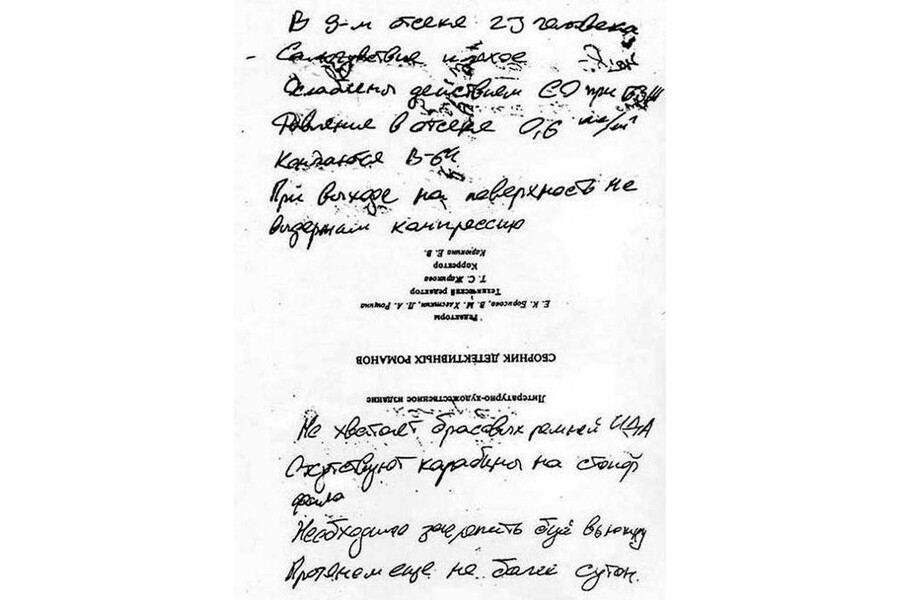 В 9-м отсеке 23 человека.
Самочувствие плохое
Ослаблены действием СО
Давление в отсеке 0,6
Кончаются В-64
При выходе на поверхность не
выдержим компрессию
Литературно-художественное издание
СБОРНИК ДЕТЕКТИВНЫХ РОМАНОВ
Редакторы
Е. К. Борисова, В. М. Хлесткин, Л. А. Рощина
Технический редактор
Т. С. Жарикова
Корректор
Карюкина Е. В.
Не хватает брасовых ремней ИДА
Отсутствуют карабины на стопор
фала
Необходимо закрепить буй вьюшку
Протянем еще не более суток.